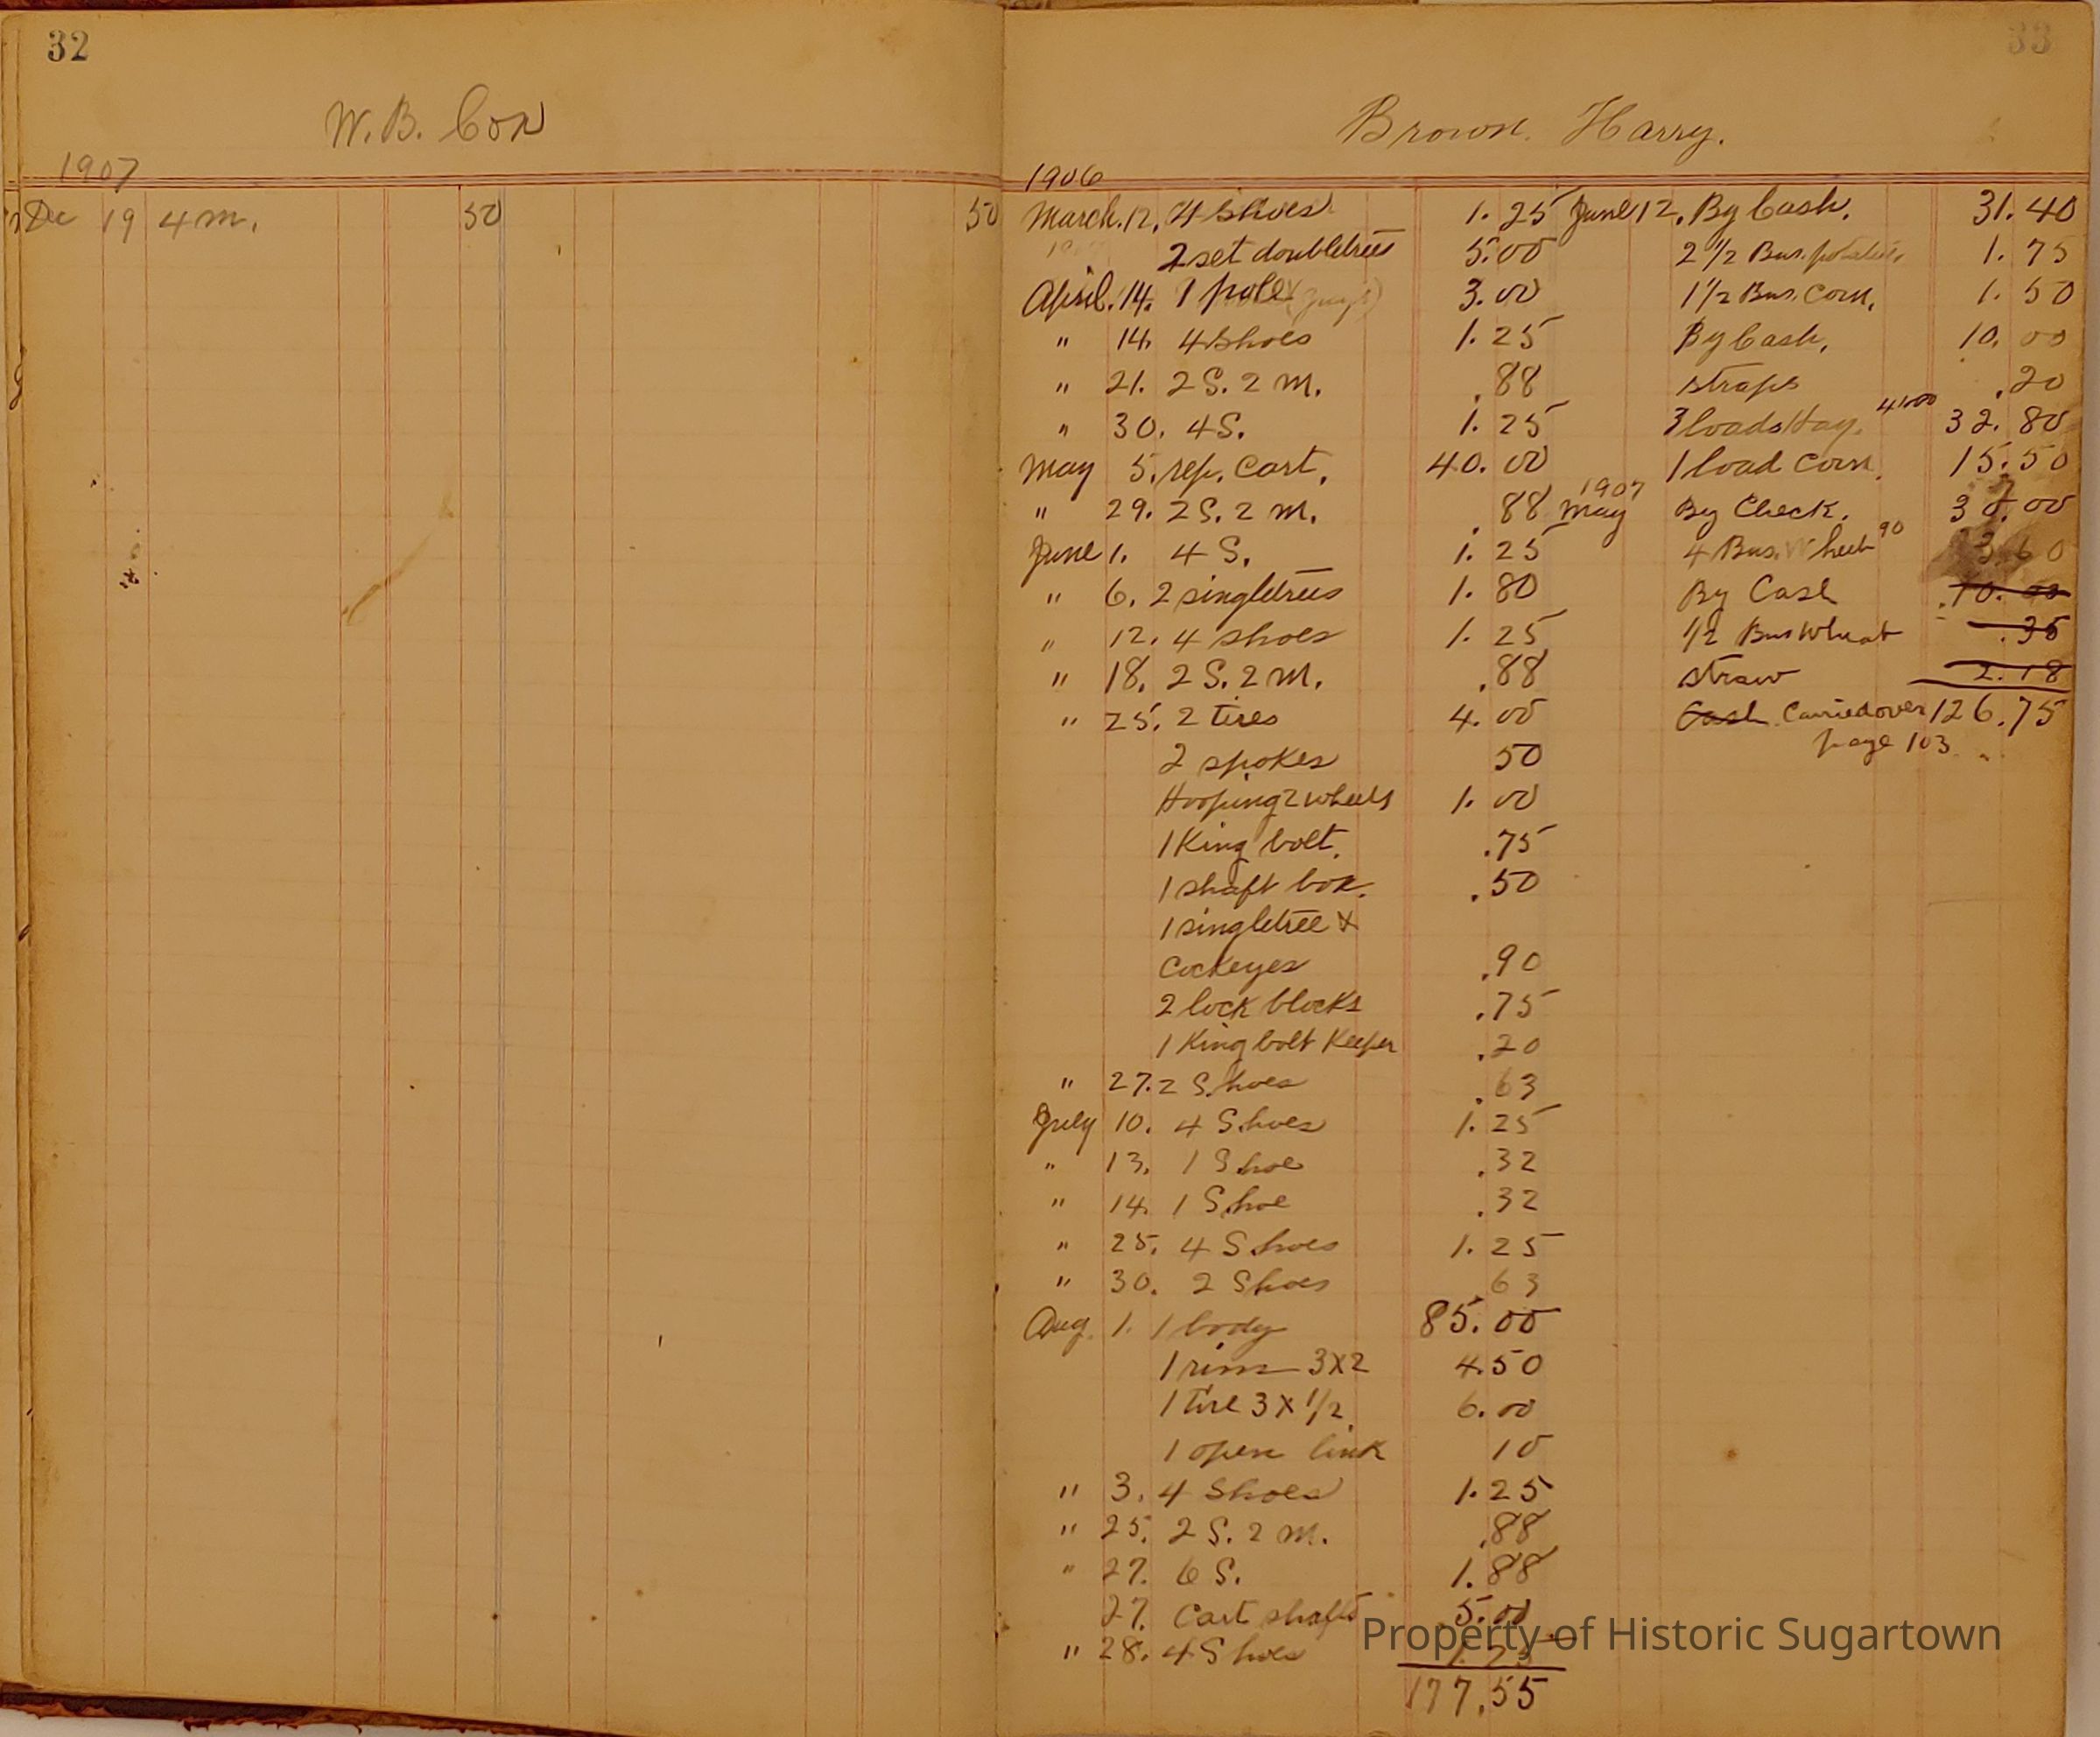 32
W. B. Cox
1907
Dec 19 4 m. 50 50
33
Brown. Harry.
1906
March. 12. 4 Shoes 1.25
2 set doubletrees 5.00
April. 14. 1 pole 3.00
" 14. 4 Shoes 1.25
" 21. 2 S. 2 m. .88
" 30. 4 S. 1.25
May 5. rep. Cart. 40.00
" 29. 2 S. 2 m. .88
June 1. 4 S. 1.25
" 6. 2 singletrees 1.80
" 12. 4 shoes 1.25
" 18. 2 S. 2 m. .88
" 25. 2 tires 4.00
2 spokes 50
Hooping 2 wheels 1.00
1 King bolt. .75
1 shaft box. .50
1 singletree &
Cockeyes .90
2 lock blocks .75
1 King bolt Keeper .20
" 27. 2 Shoes .63
July 10. 4 Shoes 1.25
" 13. 1 Shoe .32
" 14. 1 Shoe .32
" 25. 4 Shoes 1.25
" 30. 2 Shoes 63
Aug. 1. 1 body 85.00
1 rim 3x2 4.50
1 tire 3 x 1/2 6.00
1 open link 10
" 3. 4 Shoes 1.25
" 25. 2 S. 2 m. .88
" 27. 6 S. 1.88
27. Cart shafts 5.00
" 28. 4 Shoes 1.25
177.55
June 12. By Cash. 31.40
2 1/2 Bus. potatoes. 1.75
1 1/2 Bus. Corn. 1.50
By Cash. 10.00
straps .20
3 loads Hay. 32.80
1 load Corn. 15.50
1907
May By Check. 30.00
4 Bus. Wheat 90 3.60
By Cash 10.00
1/2 Bus Wheat .35
straw 2.18
Cash Carried over 126.75
page 103
Property of Historic Sugartown